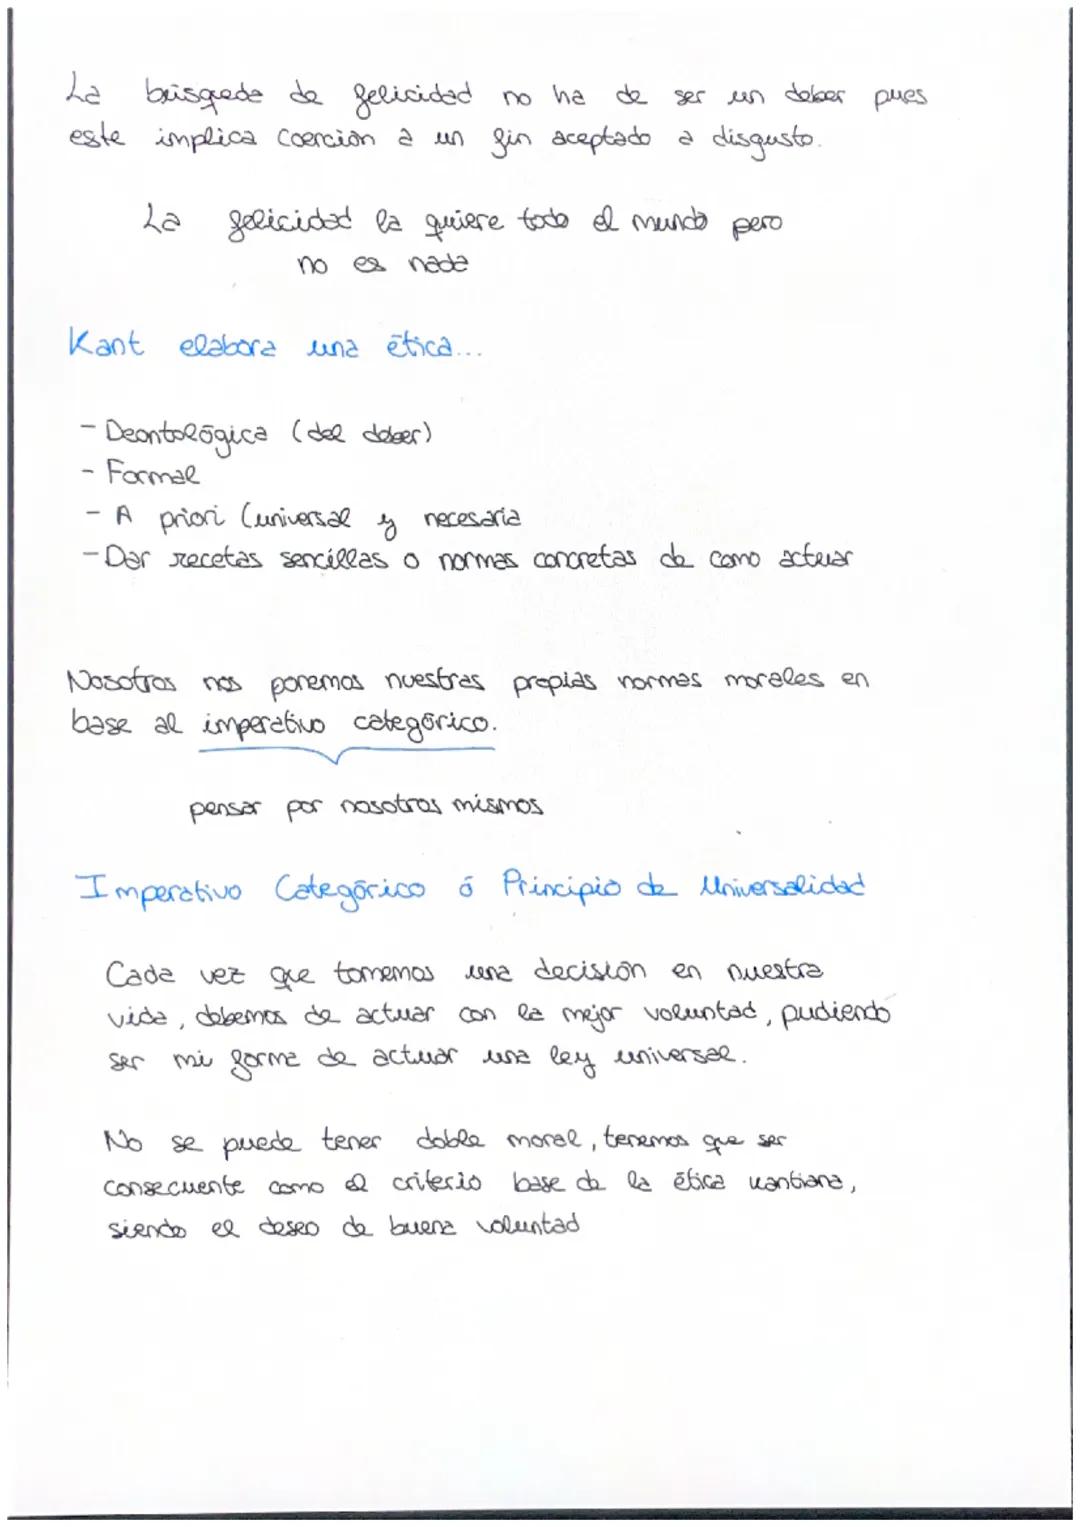 La búsqueda de felicidad no ha de ser un deber pues
este implica coerción a un fin aceptado a disgusto.
La felicidad la quiere todo el mundo pero
no es nada
Kant elabora una ética...
- Deontológica (del deber)
- Formal
- A priori (universal y necesaria
- Dar recetas sencillas o normas concretas de como actuar
Nosotros nos ponemos nuestras propias normas morales en
base al imperativo categórico.
pensar por nosotros mismos
Imperativo Categórico ó Principio de Universalidad
Cada vez que tomemos una decisión en nuestra
vida, debemos de actuar con la mejor voluntad, pudiendo
ser mi forma de actuar una ley universal.
No se puede tener doble moral, tenemos que ser
consecuente como el criterio base de la ética kantiana,
siendo el deseo de buena voluntad